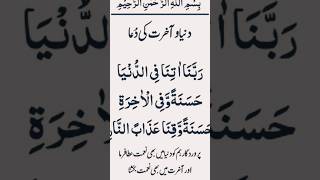 بِسْمِ اللهِ الرَّحْمٰنِ الرَّحِيْمِ
دنیا و آخرت کی دُعا
رَبَّنَا اٰتِنَا فِی الدُّنْیَا
حَسَنَةً وَّفِی الْاٰخِرَةِ
حَسَنَةً وَّقِنَا عَذَابَ النَّارِ
پروردگار ہم کو دنیا میں بھی نعمت عطا فرما
اور آخرت میں بھی نعمت بخشنا